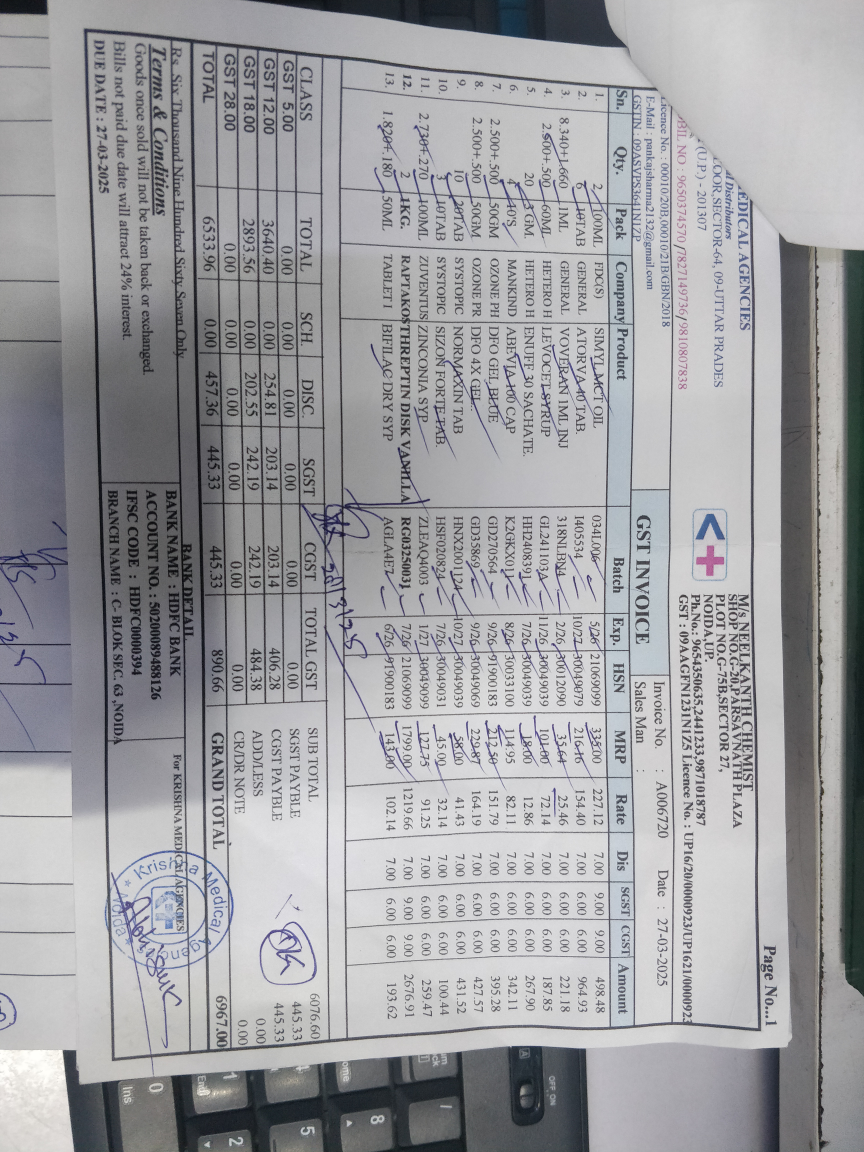 Page No...1
MEDICAL AGENCIES
Distributors
FLOOR,SECTOR-64, 09-UTTAR PRADES
(U.P.) - 201307
MOBIL NO : 9650374570/7827149736/9810807838
Licence No. : 00010/20B,00010/21B/GBN/2018
E-Mail : pankajsharma2132@gmail.com
GSTIN : 09ASVPS3641N1ZP
M/s NEELKANTH CHEMIST
SHOP NO.G-20,PARSAVNATH PLAZA
PLOT NO.G-75B,SECTOR 27,
NOIDA,UP.
Ph.No.: 9654350635,2441233,9871018787
GST : 09AAGFN1231N1Z5 Licence No. : UP16/20/0000923/UP1621/0000923
GST INVOICE
Invoice No. : A006720 Date : 27-03-2025
Sales Man :
Sn. Qty. Pack Company Product Batch Exp HSN MRP Rate Dis SGST CGST Amount
1. 2 100ML FDC(S) SIMYL MCT OIL 034L006 5/26 21069099 335.00 227.12 7.00 9.00 9.00 498.48
2. 6 10TAB GENERAL ATORVA 40 TAB. I405534 10/27 30049079 216.16 154.40 7.00 6.00 6.00 964.93
3. 8.340+1.660 1ML GENERAL VOVERAN 1ML INJ 318NLBN4 2/26 30012090 35.64 25.46 7.00 6.00 6.00 221.18
4. 2.500+.500 60ML HETERO H LEVOCET SYRUP GL241103A 11/26 30049039 101.00 72.14 7.00 6.00 6.00 187.85
5. 20 3GM. HETERO H ENUFF 30 SACHATE. HH240839 7/26 30049039 18.00 12.86 7.00 6.00 6.00 267.90
6. 4 10'S MANKIND ABEVIA 100 CAP K2GKX011 8/26 30033100 114.95 82.11 7.00 6.00 6.00 342.11
7. 2.500+.500 50GM OZONE PH DFO GEL BLUE GD270564 9/26 91900183 212.50 151.79 7.00 6.00 6.00 395.28
8. 2.500+.500 50GM OZONE PR DFO 4X GEL. GD35869 9/26 30049069 229.87 164.19 7.00 6.00 6.00 427.57
9. 10 20TAB SYSTOPIC NORMAXIN TAB HNX2001124 10/27 30049039 58.00 41.43 7.00 6.00 6.00 431.52
10. 3 10TAB SYSTOPIC SIZON FORTE TAB. HSF020824 7/26 30049031 45.00 32.14 7.00 6.00 6.00 100.44
11. 2.730+.270 100ML ZUVENTUS ZINCONIA SYP ZLEAQ4003 1/27 30049099 127.75 91.25 7.00 6.00 6.00 259.47
12. 2 1KG. RAPTAKOS THREPTIN DISK VANILLA RG0325003I 7/26 21069099 1799.00 1219.66 7.00 9.00 9.00 2676.91
13. 1.820+.180 50ML TABLETI BIFILAC DRY SYP AGLA4E7 6/26 91900183 143.00 102.14 7.00 6.00 6.00 193.62
CLASS TOTAL SCH. DISC. SGST CGST TOTAL GST
GST 5.00 0.00 0.00 0.00 0.00 0.00 0.00
GST 12.00 3640.40 0.00 254.81 203.14 203.14 406.28
GST 18.00 2893.56 0.00 202.55 242.19 242.19 484.38
GST 28.00 0.00 0.00 0.00 0.00 0.00 0.00
TOTAL 6533.96 0.00 457.36 445.33 445.33 890.66
SUB TOTAL 6076.60
SGST PAYBLE 445.33
CGST PAYBLE 445.33
ADD/LESS 0.00
CR/DR NOTE 0.00
GRAND TOTAL 6967.00
Rs. Six Thousand Nine Hundred Sixty Seven Only
Terms & Conditions
Goods once sold will not be taken back or exchanged.
Bills not paid due date will attract 24% interest.
DUE DATE : 27-03-2025
BANK DETAIL
BANK NAME : HDFC BANK
ACCOUNT NO. : 50200089488126
IFSC CODE : HDFC0000394
BRANCH NAME : C- BLOK SEC. 63 ,NOIDA
For KRISHNA MEDICAL AGENCIES
Krishna Medical Agencies
Noida